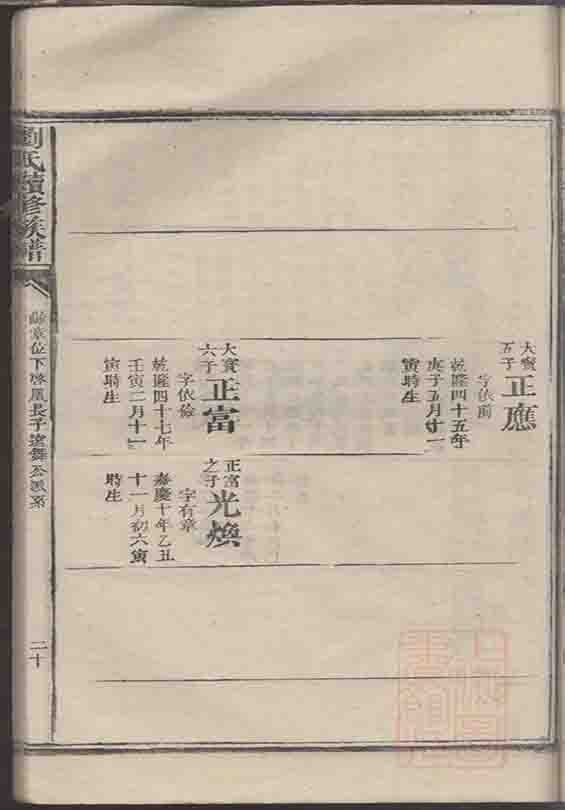 大賓五子正應
字依前
乾隆四十五年
庚子五月十一
寅時生
大賓六子正富
字依儉
乾隆四十七年
壬寅二月十一
寅時生
正富之子光煥
字有章
嘉慶十年乙丑
十一月初六寅
時生
劉氏續修族譜
位下 鳳長子 舞公派系
二十
上海圖書館